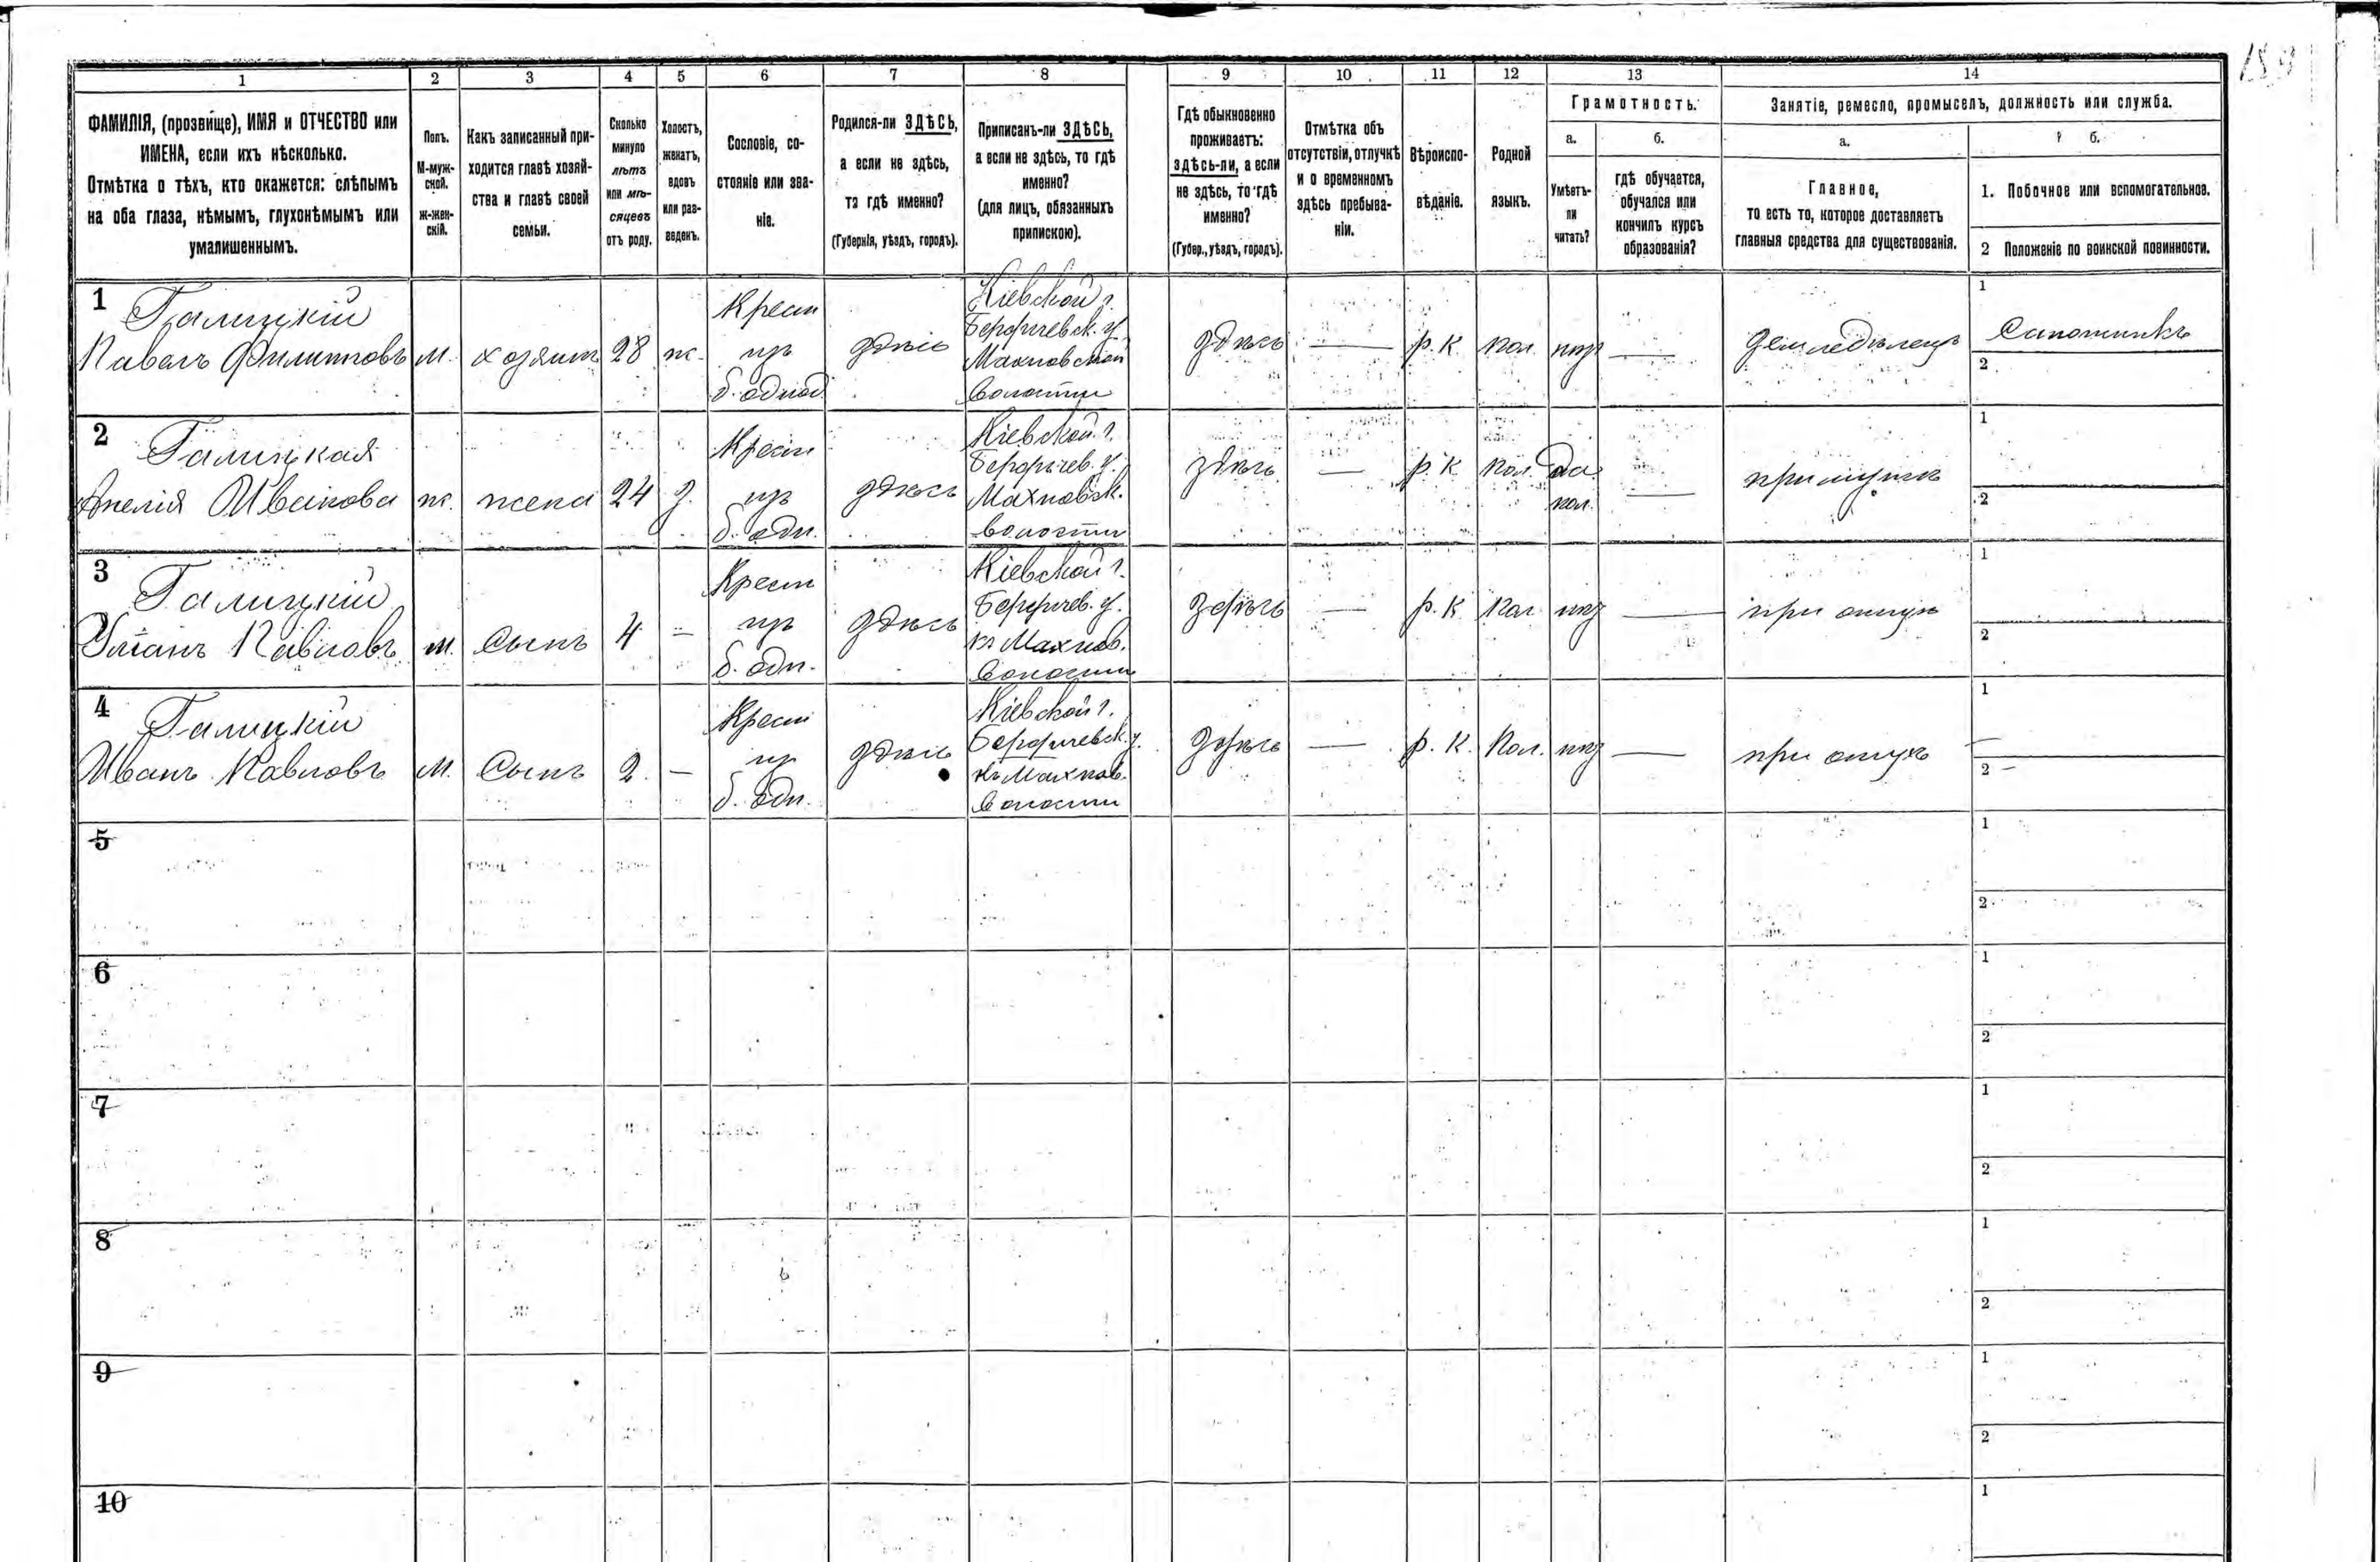 189
1 2 3 4 5 6 7 8 9 10 11 12 13 14
ФАМИЛІЯ, (прозвище), ИМЯ и ОТЧЕСТВО или
ИМЕНА, если ихъ нѣсколько.
Отмѣтка о тѣхъ, кто окажется: слѣпымъ
на оба глаза, нѣмымъ, глухонѣмымъ или
умалишеннымъ.
Полъ.
М-муж-
ской.
ж-жен-
скій.
Какъ записанный при-
ходится главѣ хозяй-
ства и главѣ своей
семьи.
Сколько
минуло
лѣтъ
или мѣ-
сяцевъ
отъ роду.
Холостъ,
женатъ,
вдовъ
или раз-
веденъ.
Сословіе, со-
стояніе или зва-
ніе.
Родился-ли ЗДѢСЬ,
а если не здѣсь,
то гдѣ именно?
(Губернія, уѣздъ, городъ).
Приписанъ-ли ЗДѢСЬ,
а если не здѣсь, то гдѣ
именно?
(для лицъ, обязанныхъ
припискою).
Гдѣ обыкновенно
проживаетъ:
здѣсь-ли, а если
не здѣсь, то гдѣ
именно?
(Губер., уѣздъ, городъ).
Отмѣтка объ
отсутствіи, отлучкѣ
и о временномъ
здѣсь пребыва-
ніи.
Вѣроиспо-
вѣданіе.
Родной
языкъ.
Грамотность.
а.
Умѣетъ-
ли
читать?
б.
гдѣ обучается,
обучался или
кончилъ курсъ
образованія?
Занятіе, ремесло, промыселъ, должность или служба.
а.
Главное,
то есть то, которое доставляетъ
главныя средства для существованія.
б.
1. Побочное или вспомогательное.
2 Положеніе по воинской повинности.
1
Галицкій
Павелъ Филипповъ
м.
хозяинъ
28
ж.
Крест
изъ
б. однод
здѣсь
Кіевской г.
Бердичевск. у.
Махновской
волости
здѣсь
—
р. к.
пол.
нѣт
—
земледѣлецъ
1
Сапожникъ
2
2
Галицкая
Анелія Иванова
ж.
жена
24
з.
Крест
изъ
б. одн.
здѣсь
Кіевской г.
Бердичев. у.
Махновск.
волости
здѣсь
—
р. к.
пол.
да
пол.
—
при мужѣ
1
2
3
Галицкій
Павловъ
м.
сынъ
4
—
Крест
изъ
б. одн.
здѣсь
Кіевской г.
Бердичев. у.
къ Махнов.
волости
здѣсь
—
р. к.
пол.
нѣт
—
при отцѣ
1
2
4
Галицкій
Иванъ Павловъ
м.
сынъ
2.
—
Крест
из
б. одн.
здѣсь
Кіевской г.
Бердичевск. у.
къ Махнов.
волости
здѣсь
—
р. к.
пол.
нѣт
—
при отцѣ
1
—
2 —
5
1
2
6
1
2
7
1
2
8
1
2
9
1
2
10
1